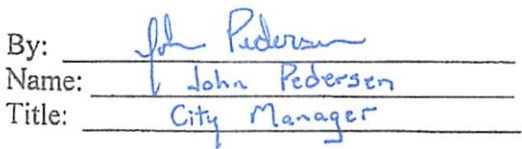 By: John Pedersen
Name: John Pedersen
Title: City Manager